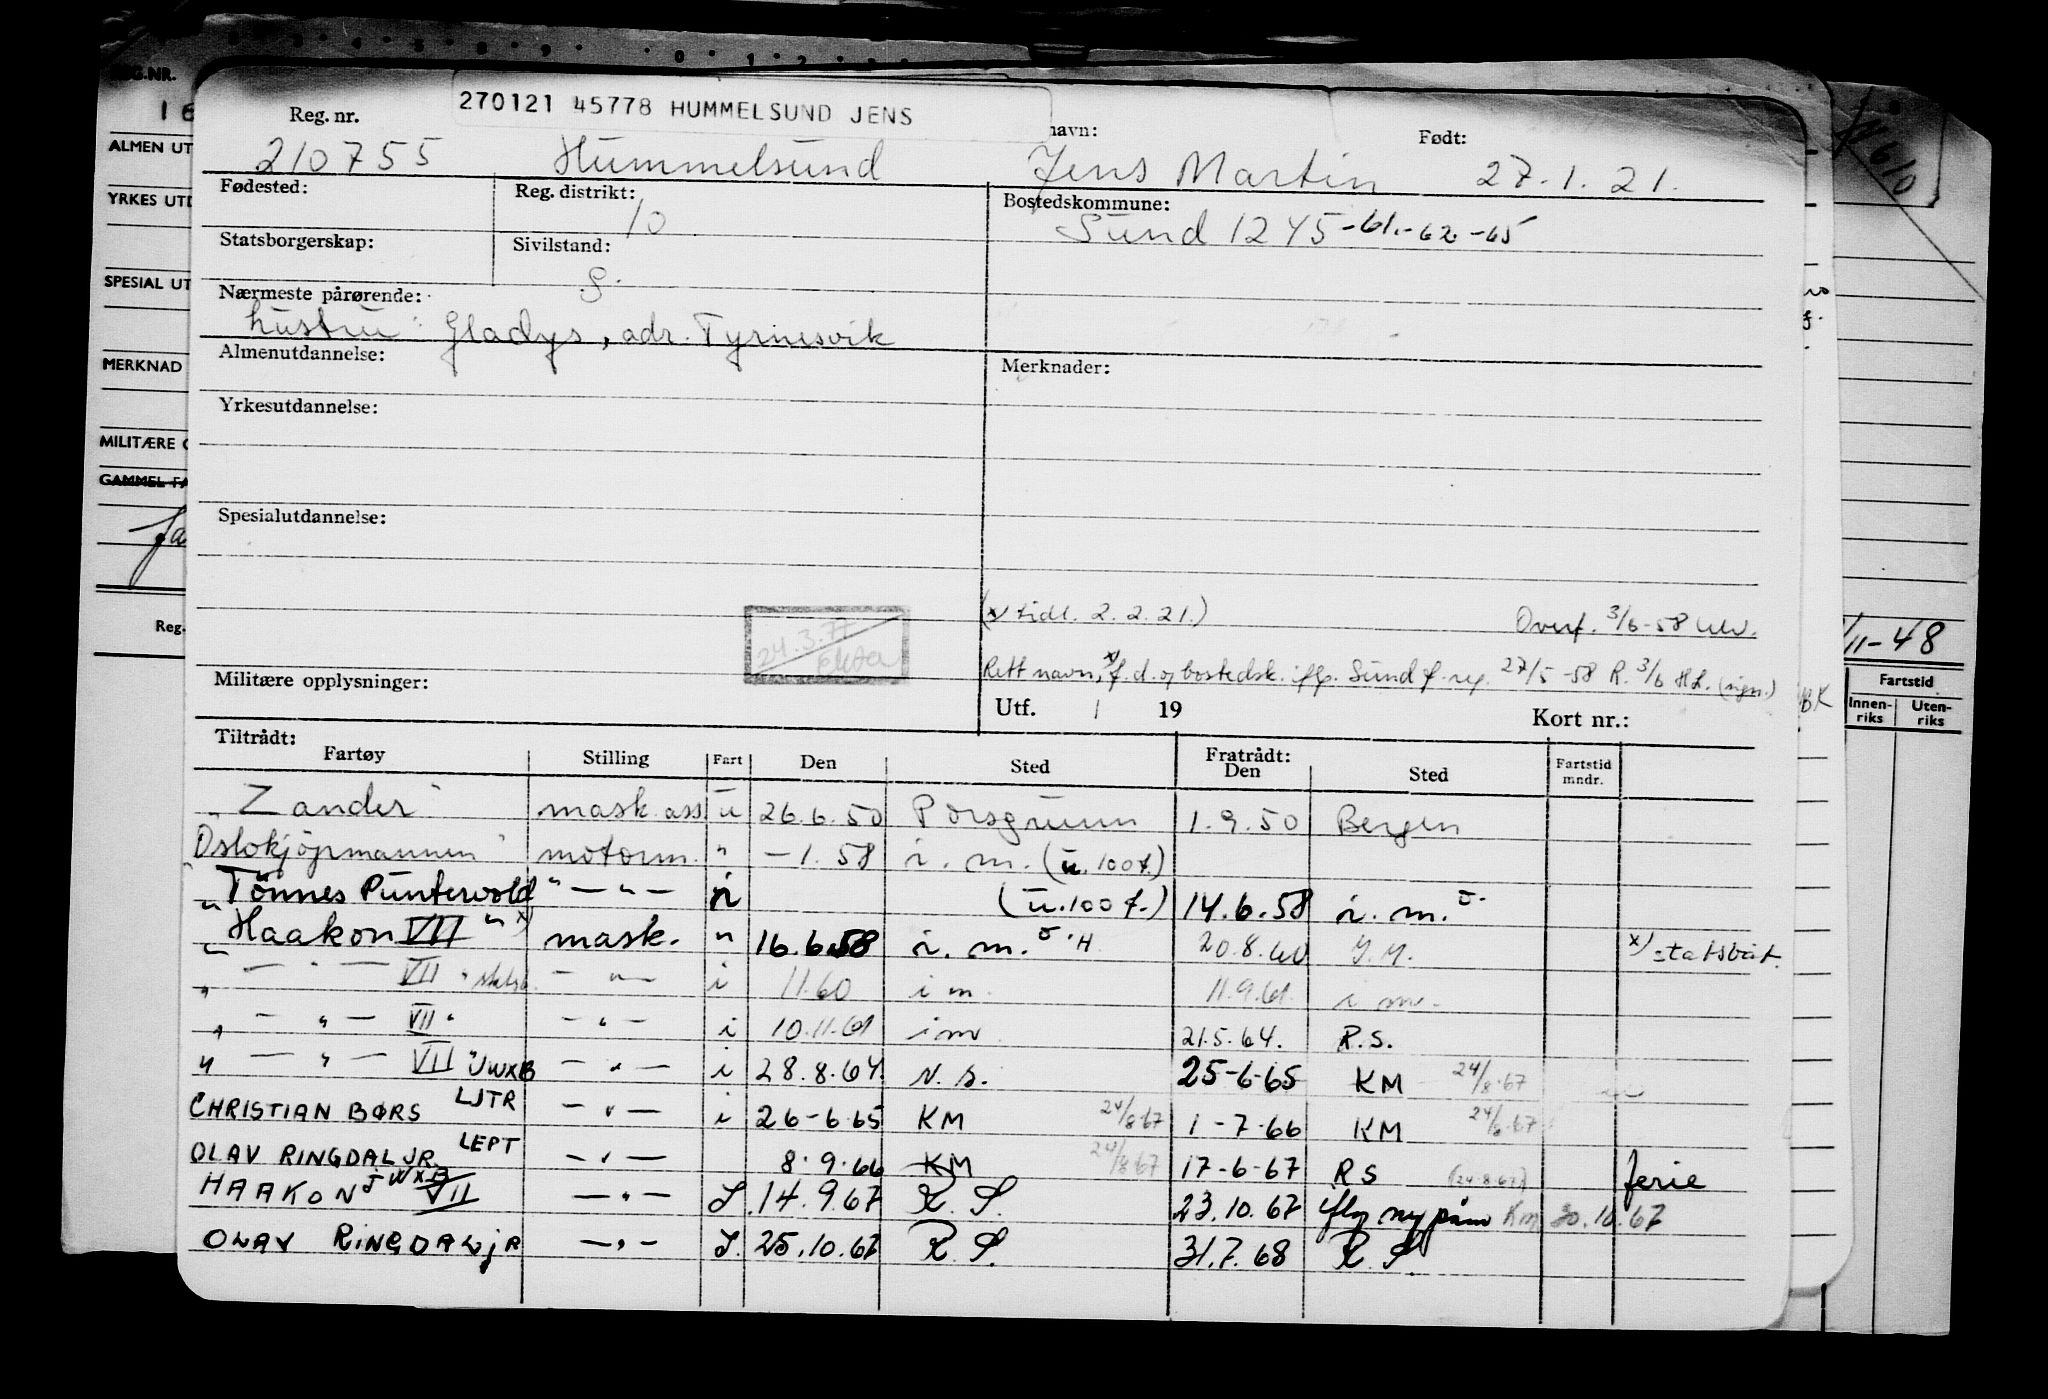 270121 45778 HUMMELSUND JENS
Reg. nr. navn: Født:
210755 Hummelsund Jens Martin 27.1.21.
Fødested: Reg. distrikt: 10 Bostedskommune:
Sund 1245-61.-62-65
Statsborgerskap: Sivilstand:
Nærmeste pårørende:
hustru: Gladys, adr. Tyrnesvik
Almenutdannelse: Merknader:
Yrkesutdannelse:
Spesialutdannelse:
24.3.71
(x) tidl. 2.2.21.) Overf. 3/6-58
Rett navn, x) f.d. og bostedsk. iflg. Sund f. reg. 27/5-58 R. 3/6 HL. (sign.)
Militære opplysninger:
Utf. / 19 Kort nr.:
Tiltrådt: Fratrådt:
Fartøy Stilling Fart Den Sted Den Sted Fartstid mndr.
"Zander" mask. ass. u 26.6.50 Porsgrunn 1.9.50 Bergen
"Oslokjøpmannen" motorm. " -1.58 i. m. (u. 100 f.)
"Tönnes Puntervold" — " — i (u. 100 f.) 14.6.58 i. m.
"Haakon VII" x) mask. " 16.6.58 i. m. 20.8.60 x) statsbåt.
" — " — VII " — " — i 11.60 i m. 11.9.61. i m.
" — " — VII " — " — i 10.11.61 i m 21.5.64. R.S.
" — " — VII " JWXB — " — i 28.8.64. N.S. 25-6-65 KM 24/8-67
CHRISTIAN BØRS LJTR — " — i 26-6-65 KM 24/8-67 1-7-66 KM 24/8-67
OLAV RINGDAL JR. LEPT — " — 8.9.66 KM 24/8-67 17-6-67 RS (24.8.67) ferie
HAAKON VII JWXB — " — I. 14.9.67 R.S. 23.10.67 iflg ny påm Km 30.10.67
OLAV RINGDAL jR — " — I. 25.10.67 R.S. 31.7.68 R.S.
REG.NR.
ALMEN UT
YRKES UTD
SPESIAL UT
MERKNAD
MILITÆRE O
GAMMEL FA
Reg.
1610
/11-48
Fartstid
Innen-riks Uten-riks
BK